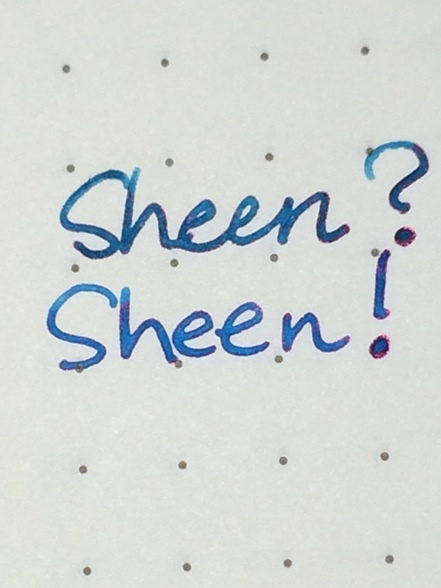 Sheen?
Sheen!